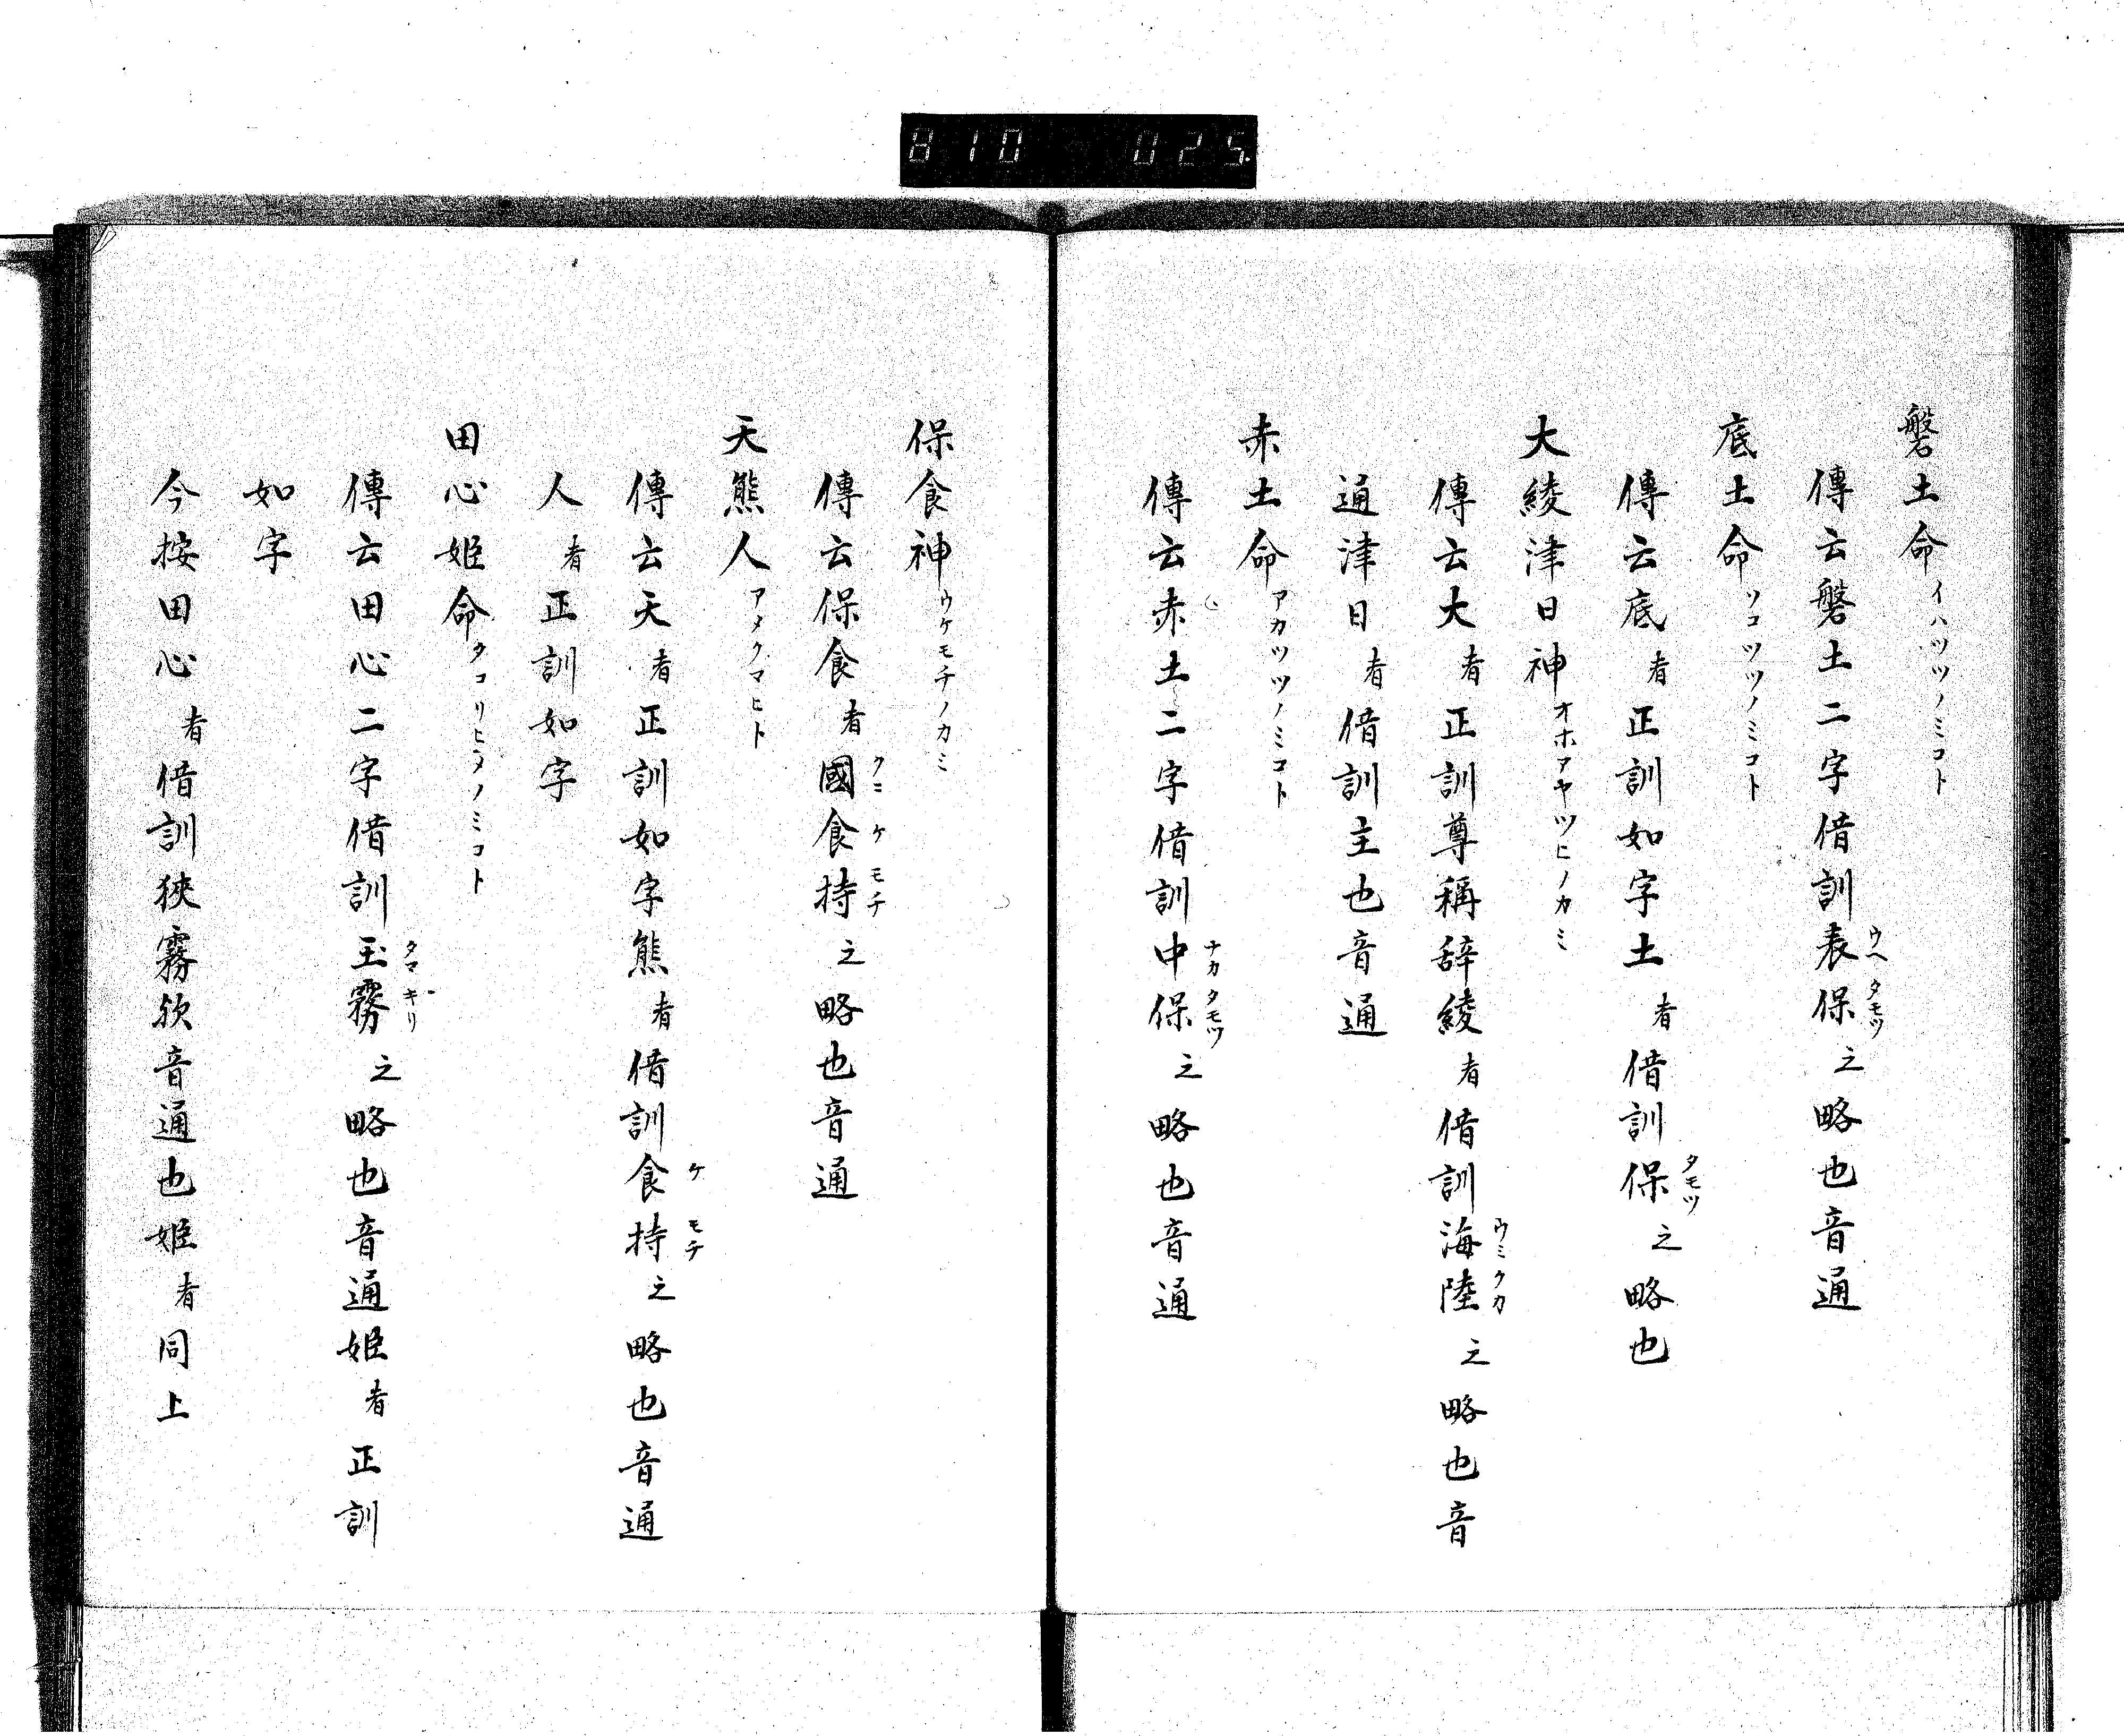 810 025
磐土命イハツツノミコト
傳云磐土二字借訓表保ウヘタモツ之略也音通
底土命ソコツツノミコト
傳云底者正訓如字土者借訓保タモツ之略也
大綾津日神オホアヤツヒノカミ
傳云大者正訓尊稱辞綾者借訓海陸ウミクカ之略也音
通津日者借訓主也音通
赤土命アカツツノミコト
傳云赤土二字借訓中保ナカタモツ之略也音通
保食神ウケモチノカミ
傳云保食者國食持クニケモチ之略也音通
天熊人アメクマヒト
傳云天者正訓如字熊者借訓食持ケモチ之略也音通
人者正訓如字
田心姫命タコリヒメノミコト
傳云田心二字借訓玉霧タマギリ之略也音通姫者正訓
如字
今按田心者借訓狹霧欤音通也姫者同上